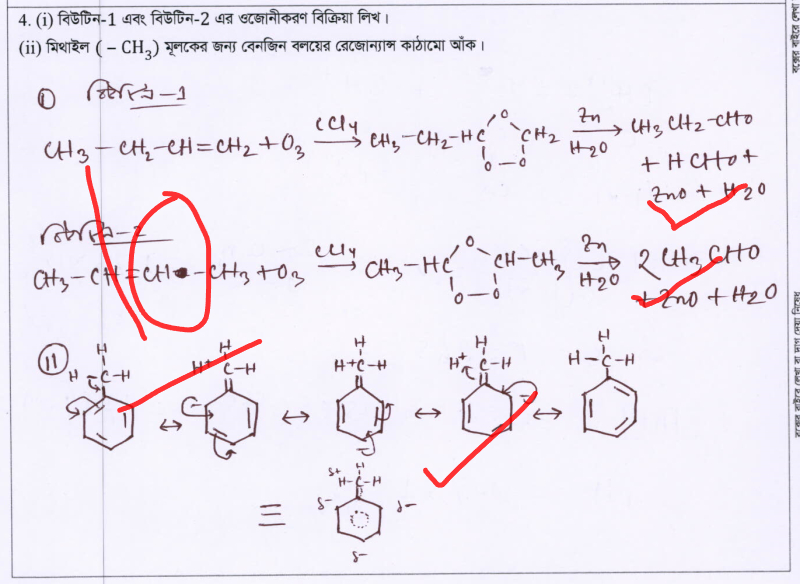 4. (i) বিউটিন-1 এবং বিউটিন-2 এর ওজোনীকরণ বিক্রিয়া লিখ।
(ii) মিথাইল (– CH₃) মূলকের জন্য বেনজিন বলয়ের রেজোন্যান্স কাঠামো আঁক।
① বিউটিন-1
CH₃–CH₂–CH=CH₂+O₃ CCl₄ → CH₃–CH₂–HC O CH₂ O–O Zn H₂O → CH₃CH₂–CHO
+ HCHO +
ZnO + H₂O
বিউটিন-2
CH₃–CH=CH–CH₃+O₃ CCl₄ → CH₃–HC O CH–CH₃ O–O Zn H₂O → 2CH₃CHO
+ ZnO + H₂O
⑪
H H H H H
H–C–H H⁺ C–H H⁺C–H H⁺ C–H H–C–H
↔ ↔ ↔ ↔
≡ δ+ H H–C–H
δ– δ–
δ–